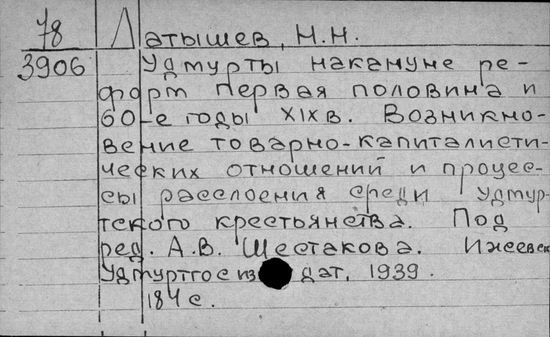 78 Латышев, Н.Н.
3906 Удмурты накануне ре-
форм первая половина и
60-е годы XIX в. Возникно-
вение товарно-капиталисти-
ческих отношений и процес-
сы расслоения среди удмур-
тского крестьянства. Под
ред. А.В. Шестакова. Ижевск
Удмуртгосиз дат, 1939.
184 с.